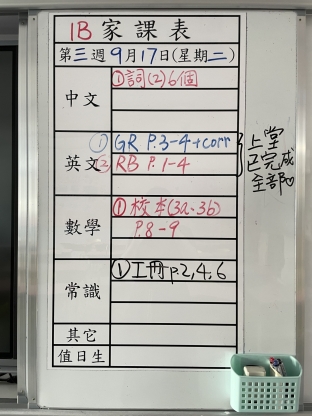 1B 家課表
第三週9月17日(星期二)
中文
①詞(2)6個
英文
① GR P.3-4+corr
② RB P.1-4
上堂
已完成
全部♡
數學
①校本(3a-3b)
P.8-9
常識
①工冊p.2,4,6
其它
值日生